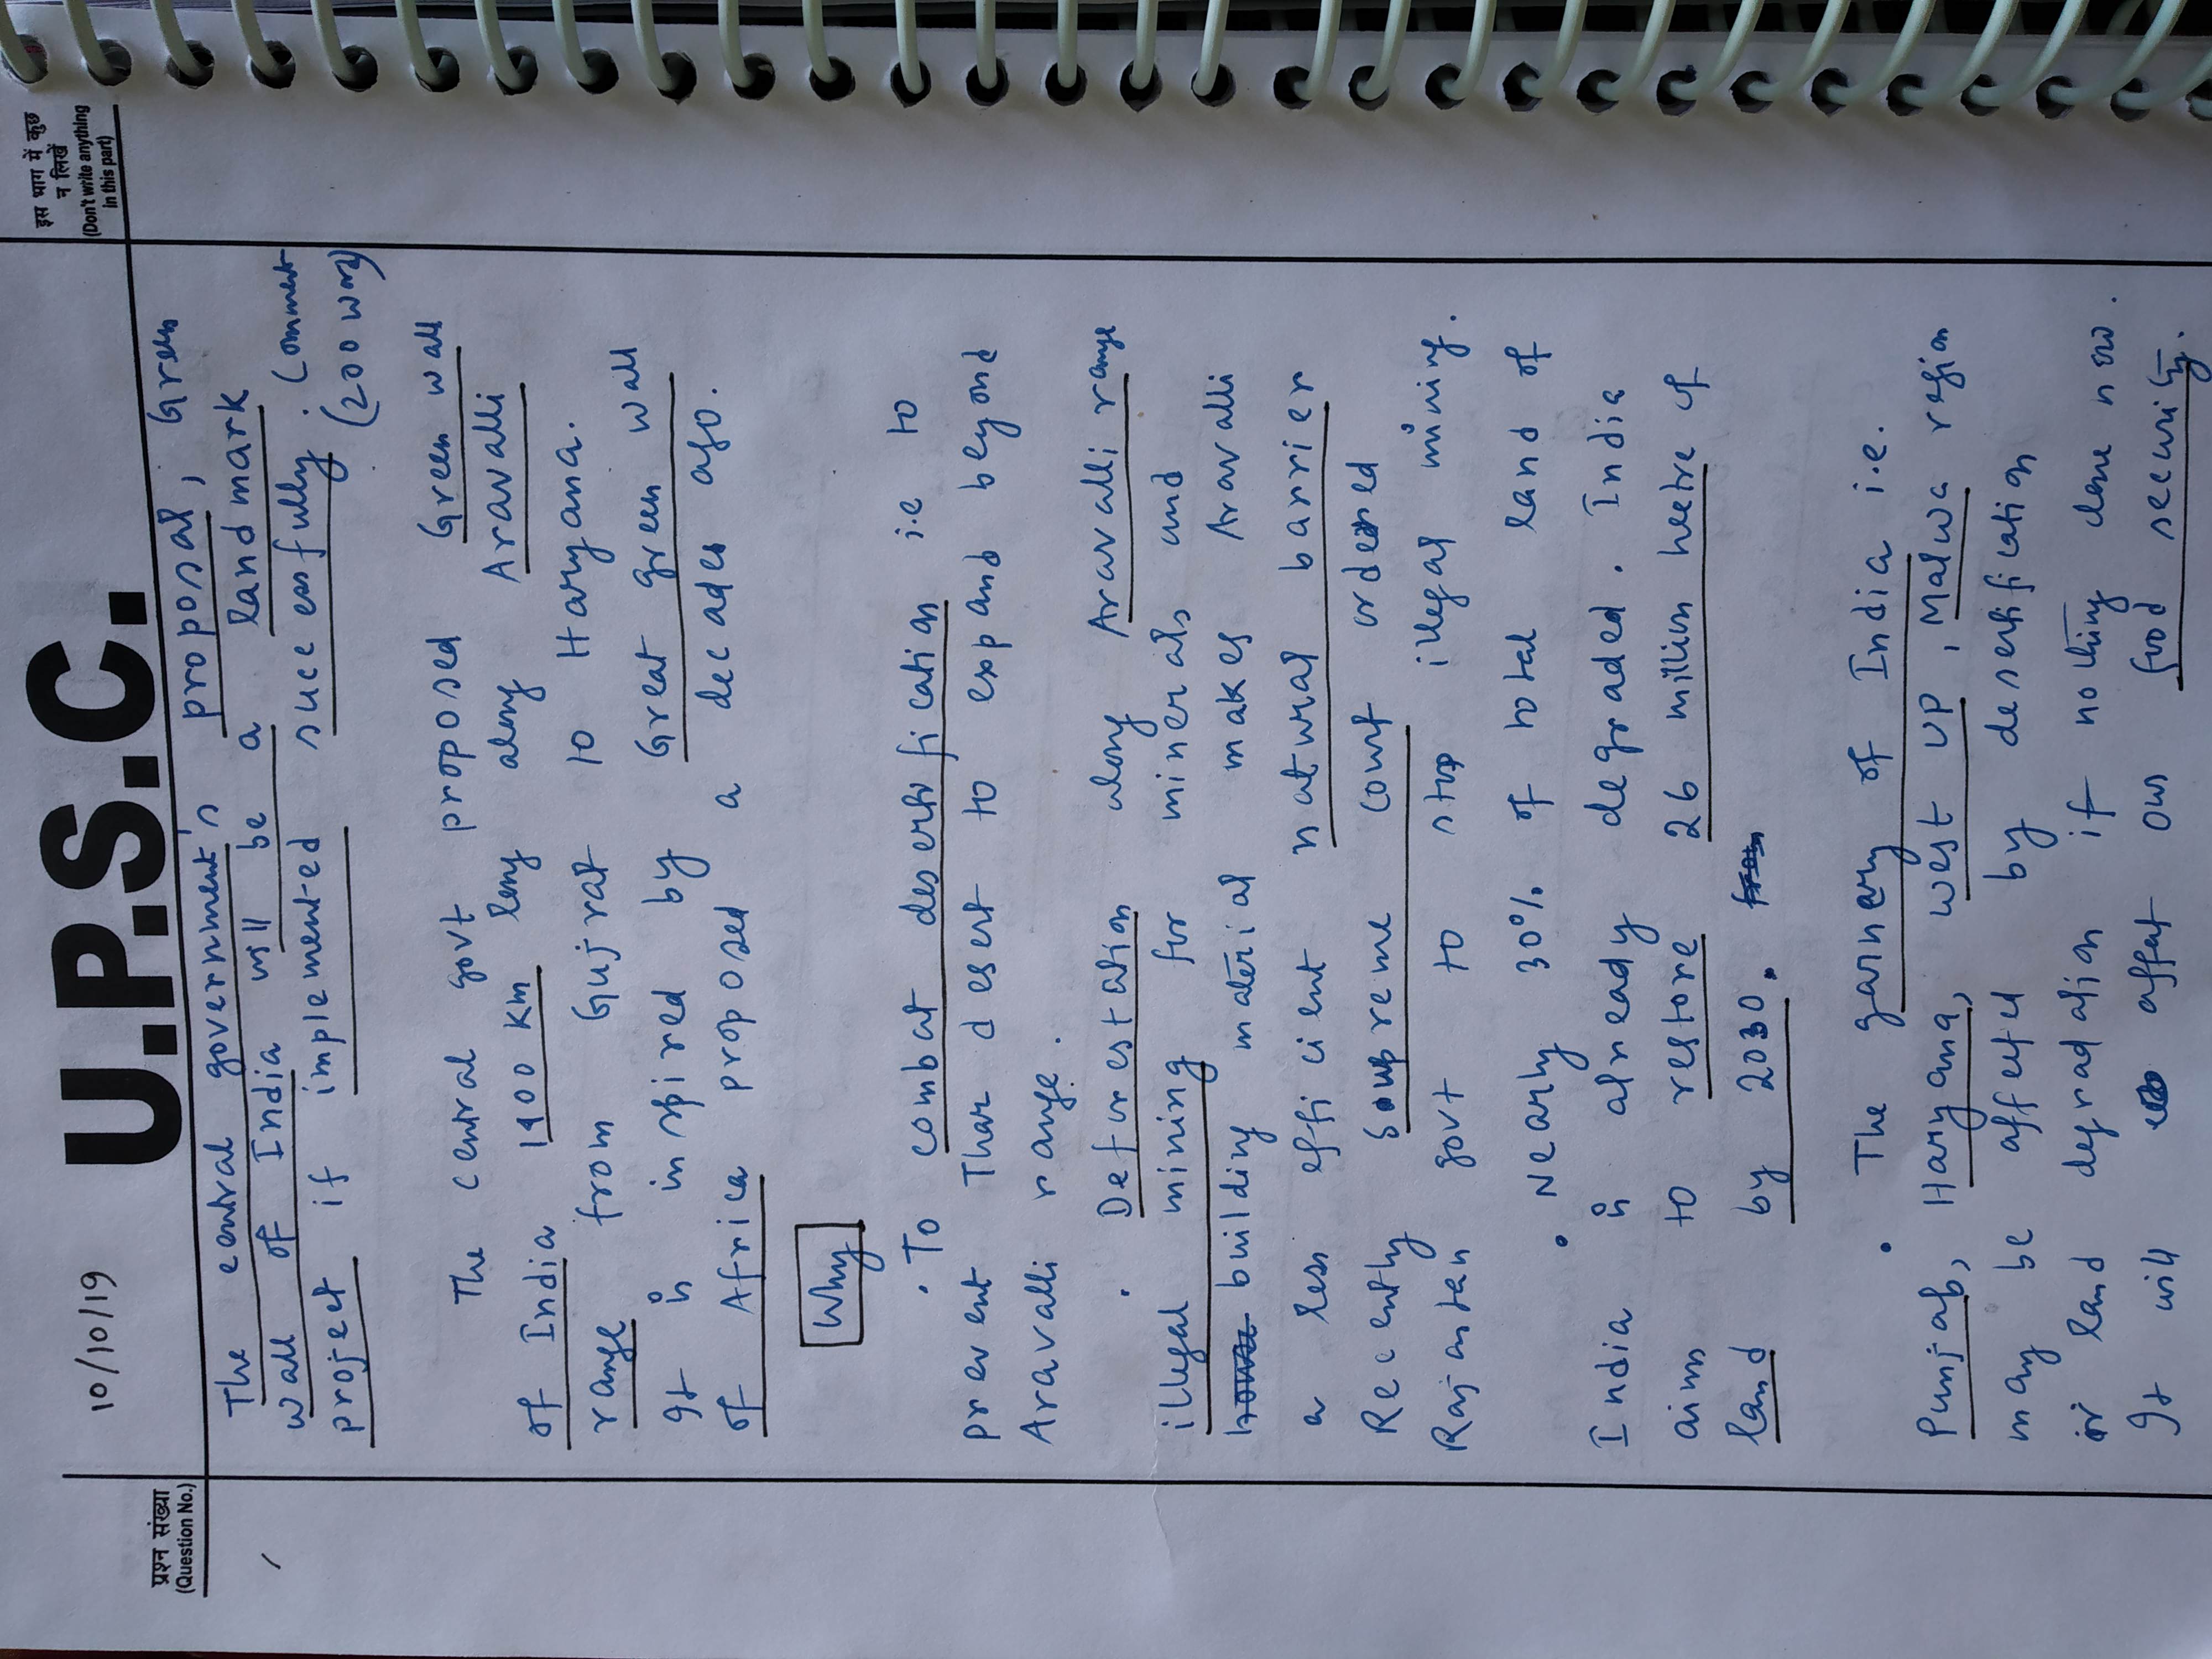 10/10/19
U.P.S.C.
प्रश्न संख्या
(Question No.)
इस भाग में कुछ
न लिखें
(Don't write anything
in this part)
The central government's proposal, Green
wall of India will be a landmark
project if implemented successfully. Comment
(200 words)
The central govt proposed Green wall
of India 1400 km long along Aravalli
range from Gujrat to Haryana.
It is inspired by Great green wall
of Africa proposed a decades ago.
Why
· To combat desertification i.e to
prevent Thar desert to expand beyond
Aravalli range.
· Deforestation along Aravalli range
illegal mining for minerals and
building material makes Aravalli
a less efficient natural barrier
Recently Supreme court ordered
Rajastan govt to stop illegal mining.
· Nearly 30% of total land of
India is already degraded. India
aims to restore 26 million hectre of
land by 2030.
· The garnery of India i.e.
Punjab, Haryana, West UP, Malwa region
may be affeted by desertification
or land degradation if nothing done now.
It will affect own food security.